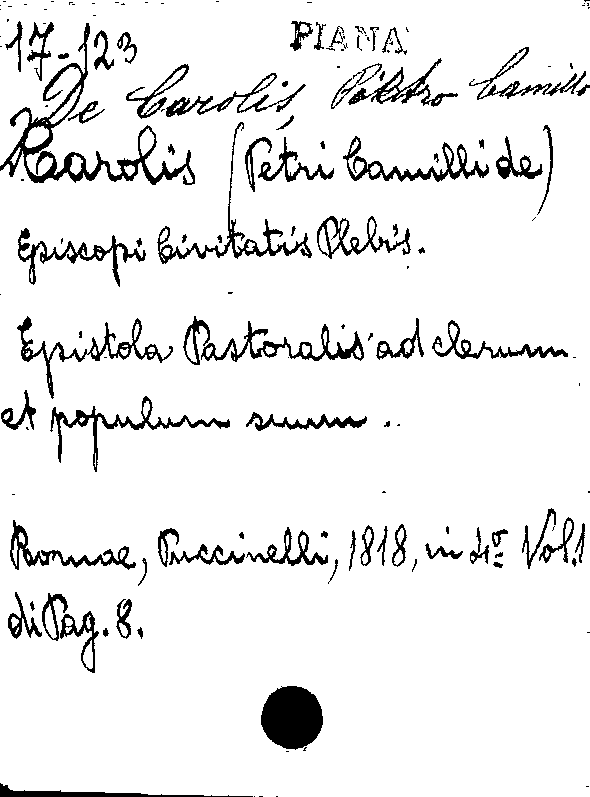 17-123 PIANA
De Carolis, Pietro Camillo
Karolis (Petri Camilli de)
Episcopi Civitatis Plebis.
Epistola Pastoralis ad clerum
et populum suum ..
Romae, Puccinelli, 1818, in 4º Vol. 1
di Pag. 8.